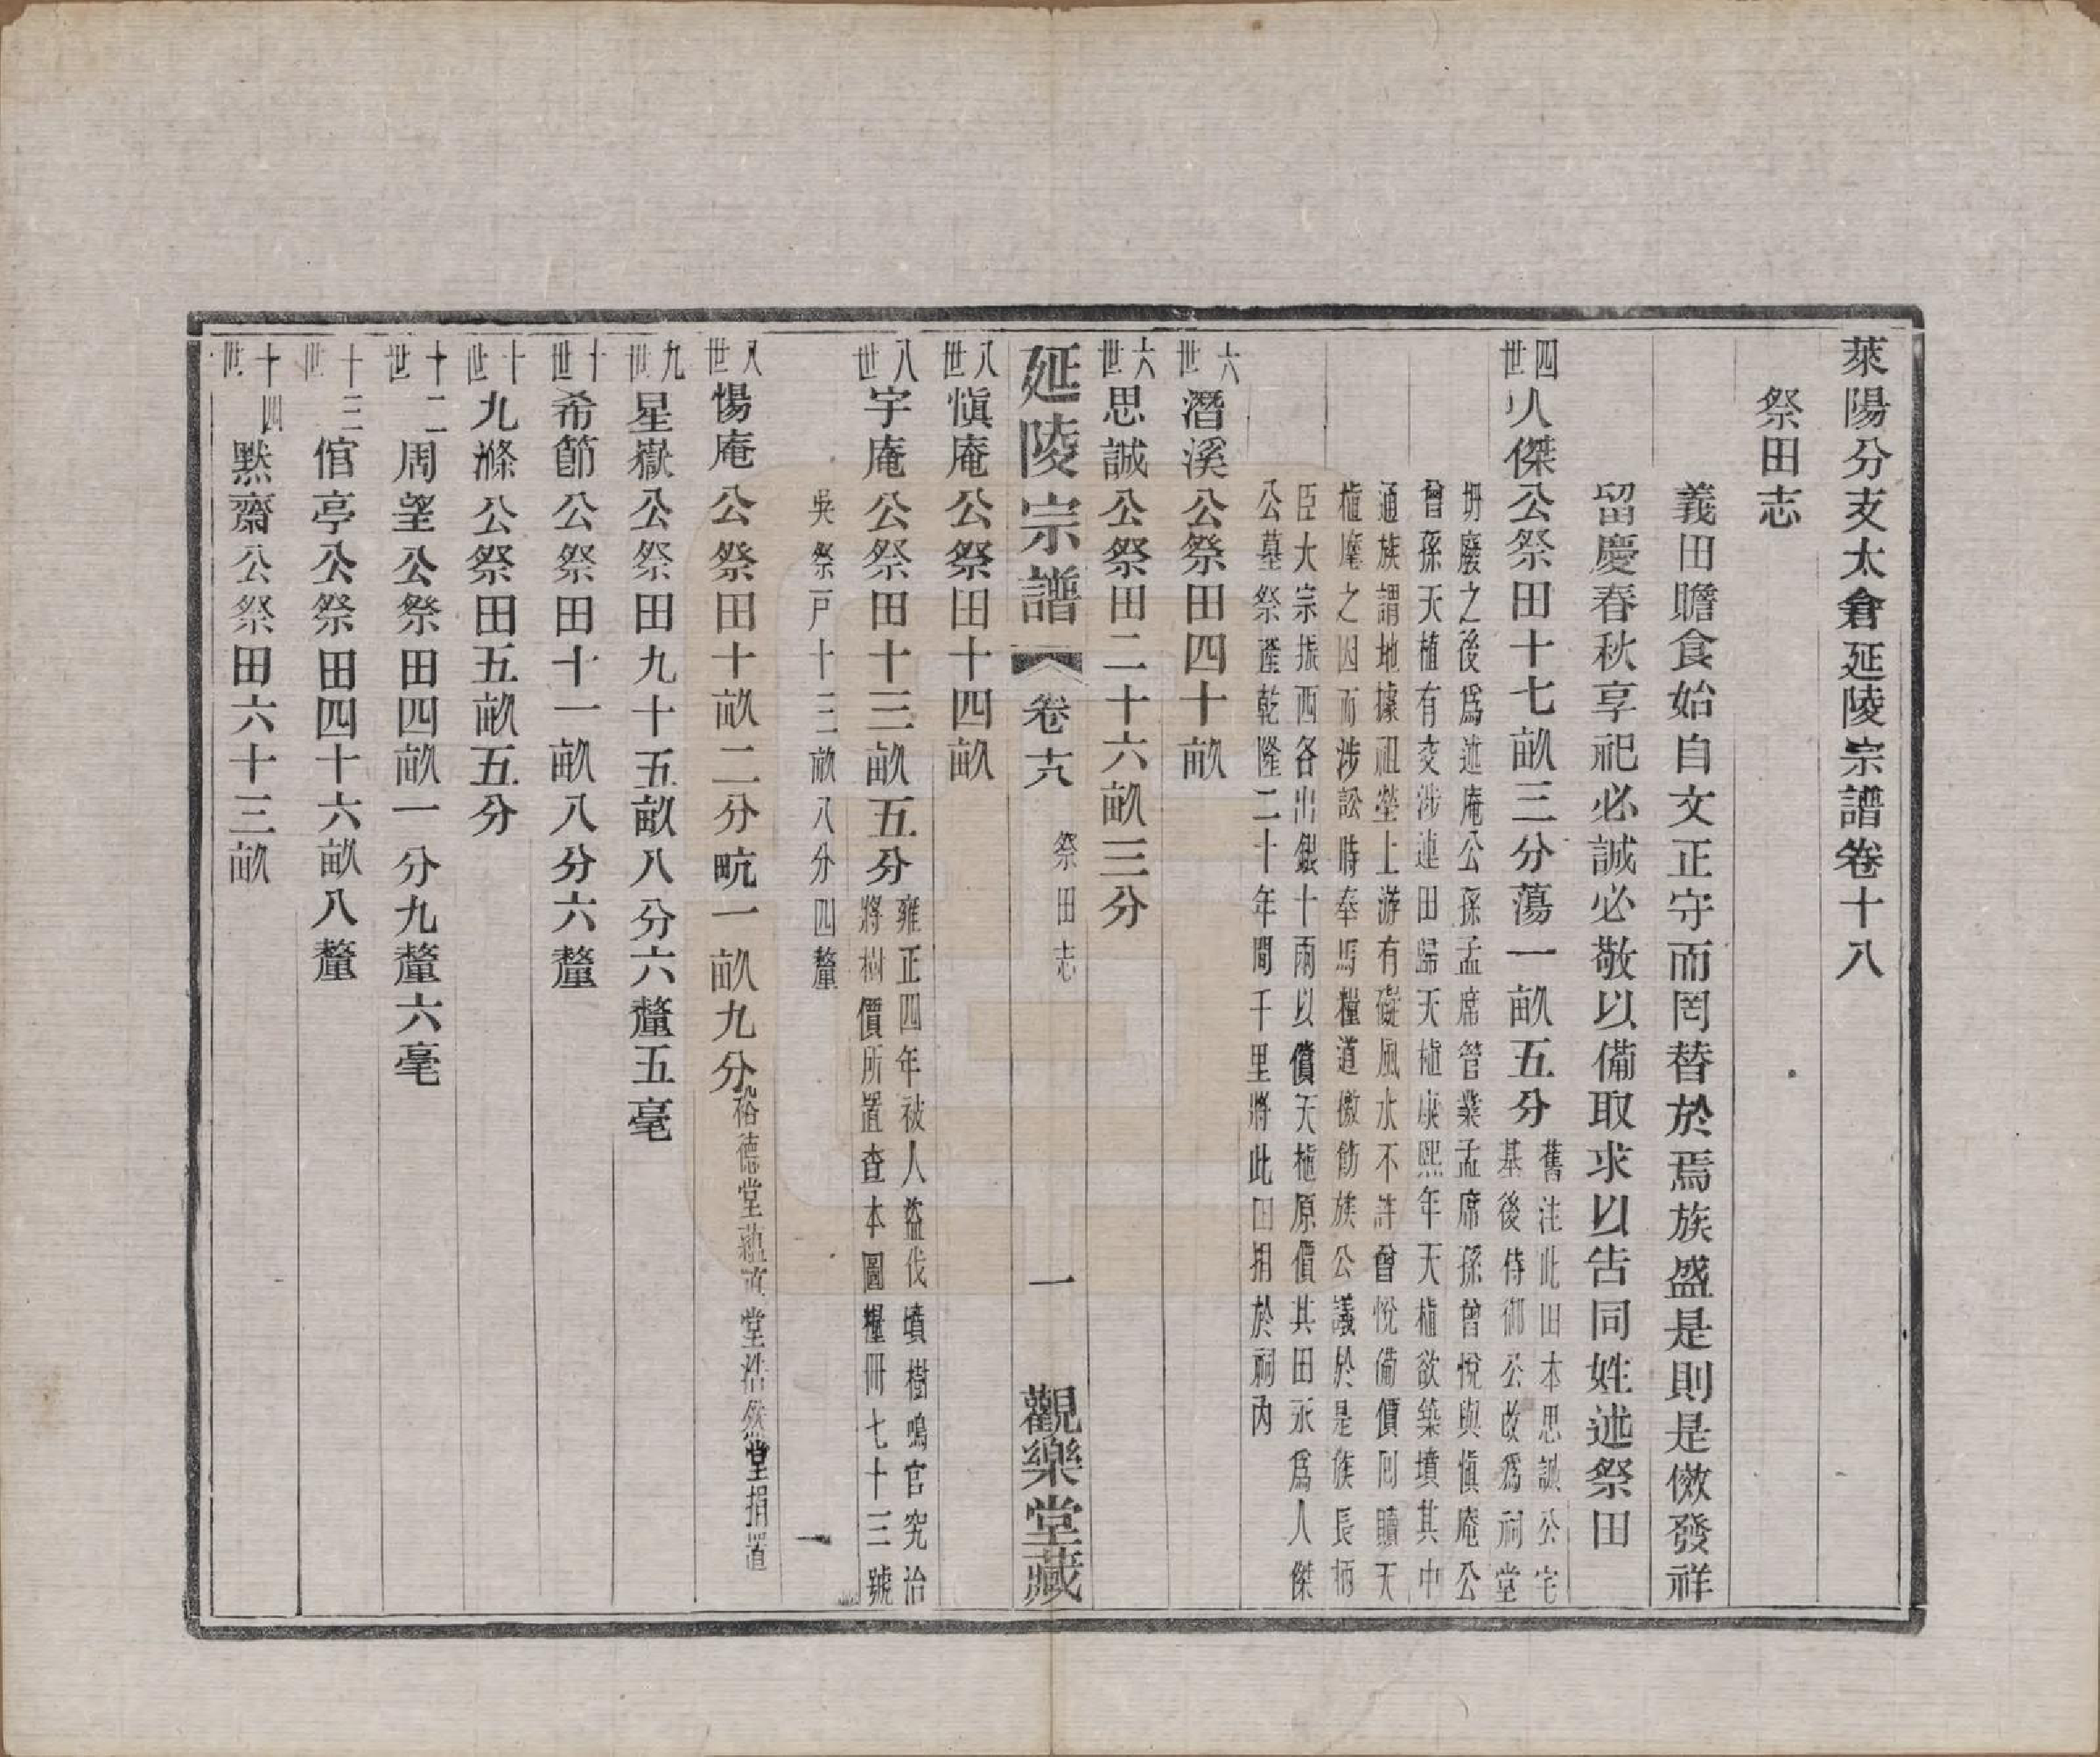 萊陽分支太倉延陵宗譜卷十八
祭田志
義田贍食始自文正守而罔替於焉族盛是則是傚發祥
留慶春秋享祀必誠必敬以備取求以告同姓述祭田
四世人傑公祭田十七畝三分蕩一畝五分
舊注此田本思誠公宅
基後侍御公改為祠堂
坍廢之後爲述庵公孫孟席管業孟席孫曾悅與愼庵公
曾孫天植有交涉連田歸天植康熙年天植欲築墳其中
通族謂地據祖塋上游有礙風水不許曾悅備價囘贖天
植麾之因而涉訟時奉馬糧道檄飭族公議於是族長柄
臣大宗振西各出銀十兩以償天植原價其田永爲人傑
公墓祭產乾隆二十年間千里將此田捐於祠內
六世潛溪公祭田四十畝
六世思誠公祭田二十六畝三分
延陵宗譜 卷十八 祭田志 一 觀樂堂藏
八世愼庵公祭田十四畝
八世宇庵公祭田十三畝五分
雍正四年被人盜伐墳樹鳴官究治
將樹價所置查本圖糧冊七十三號
吳祭戶十三畝八分四釐
八世惕庵公祭田十畝二分𤱶一畝九分
裕德堂蘊眞堂浩然堂捐置
九世星嶽公祭田九十五畝八分六釐五毫
十世希節公祭田十一畝八分六釐
十世九滌公祭田五畝五分
十二世周望公祭田四畝一分九釐六毫
十三世倌亭公祭田四十六畝八釐
十四世默齋公祭田六十三畝